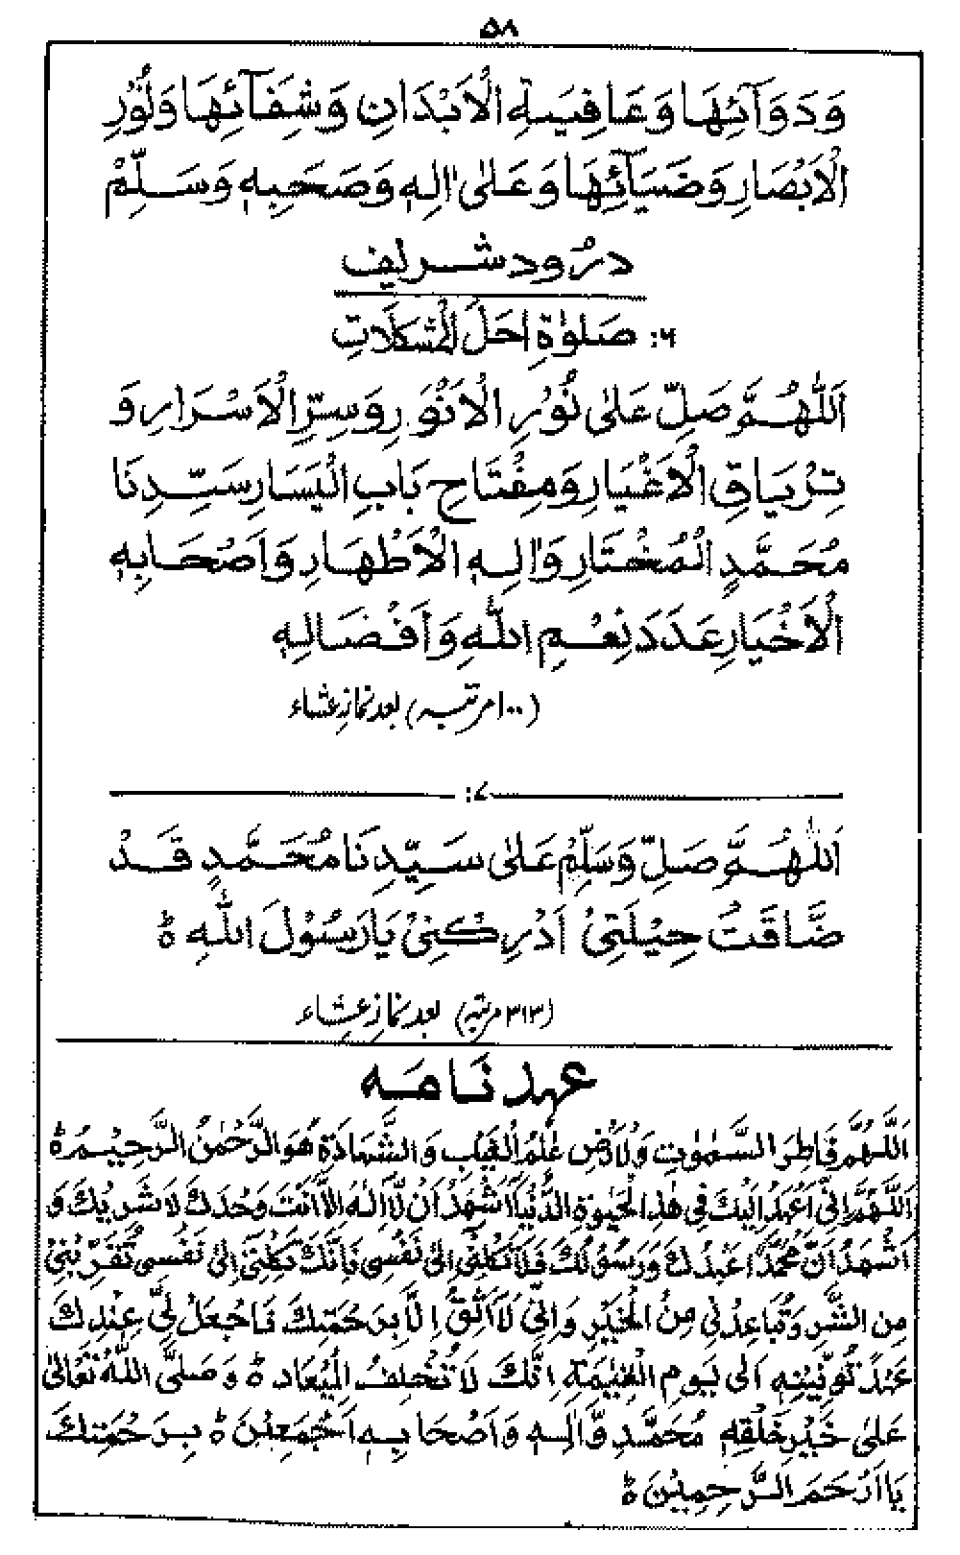 ۵۸
وَدَوَآئِهَا وَعَافِيَةِ الْاَبْدَانِ وَشِفَآئِهَا وَنُوْرِ
الْاَبْصَارِ وَضِيَآئِهَا وَعَلٰى اٰلِهٖ وَصَحْبِهٖ وَسَلِّمْ
درُود شریف
۶: صَلوٰةِ احَلَ الْمُشكَلَاتِ
اَللّٰهُمَّ صَلِّ عَلٰى نُوْرِ الْاَنْوَرِ وَسِرِّ الْاَسْرَارِ وَ
تِرْيَاقِ الْاَغْيَارِ وَمِفْتَاحِ بَابِ الْيَسَارِ سَيِّدِنَا
مُحَمَّدِ الْمُخْتَارِ وَاٰلِهِ الْاَطْهَارِ وَاَصْحَابِهِ
الْاَخْيَارِ عَدَدَ نِعَمِ اللّٰهِ وَاَفْضَالِهٖ
(۱۰۰ مرتبہ) بعد نمازِ عشاء
۷:
اَللّٰهُمَّ صَلِّ وَسَلِّمْ عَلٰى سَيِّدِنَا مُحَمَّدٍ قَدْ
ضَاقَتْ حِيْلَتِيْ اَدْرِكْنِيْ يَارَسُوْلَ اللّٰهِ ط
(۳۱۳ مرتبہ) بعد نمازِ عشاء
عہد نَامَہ
اَللّٰهُمَّ فَاطِرَ السَّمٰوٰتِ وَلْاَرْضِ عٰلِمُ الْغَيْبِ وَالشَّهَادَةِ هُوَ الرَّحْمٰنُ الرَّحِيْمُ ط
اَللّٰهُمَّ اِنِّیْ اَعْهَدُ اِلَيْكَ فِیْ هٰذِهِ الْحَيٰوةِ الدُّنْيَا اَشْهَدُ اَنْ لَّا اِلٰهَ اِلَّا اَنْتَ وَحْدَكَ لَا شَرِيْكَ لَكَ وَ
اَشْهَدُ اَنَّ مُحَمَّدًا عَبْدُكَ وَرَسُوْلُكَ فَلَا تَكِلْنِیْ اِلٰى نَفْسِیْ فَاِنَّكَ تَكِلْنِیْ اِلٰى نَفْسِیْ تُقَرِّبْنِیْ
مِن الشَّرِ وَتُبَاعِدْنِیْ مِنُ الْخَيْرِ وَاِنِّیْ لَا اَثِقُ اِلَّا بِرَحْمَتِكَ فَاجْعَلْ لِیْ عِنْدَكَ
عَهْدً تُوَفِّيْهِ اِلٰى يَومِ الْقِيٰمَةِ اِنَّكَ لَا تُخْلِفُ الْمِيْعَاد ط وَصَلَّى اللّٰهُ تَعَالٰى
عَلٰى خَيْرِ خَلْقِهٖ مُحَمَّدٍ وَّاٰلِهٖ وَاَصْحَابِهٖ اَجْمَعِيْنَ ط بِرَحْمَتِكَ
يَا اَرْحَمَ الرّٰحِمِيْنَ ط